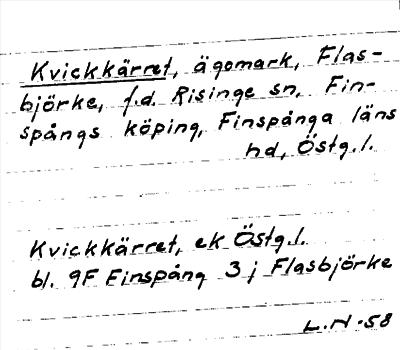 Kvickkärret, ägomark, Flas-
björke, f.d. Risinge sn, Fin-
spångs köping, Finspånga läns
hd, Östg.l.
Kvickkärret, ek Östg.l.
bl. 9F Finspång 3 j Flasbjörke
L.N-58